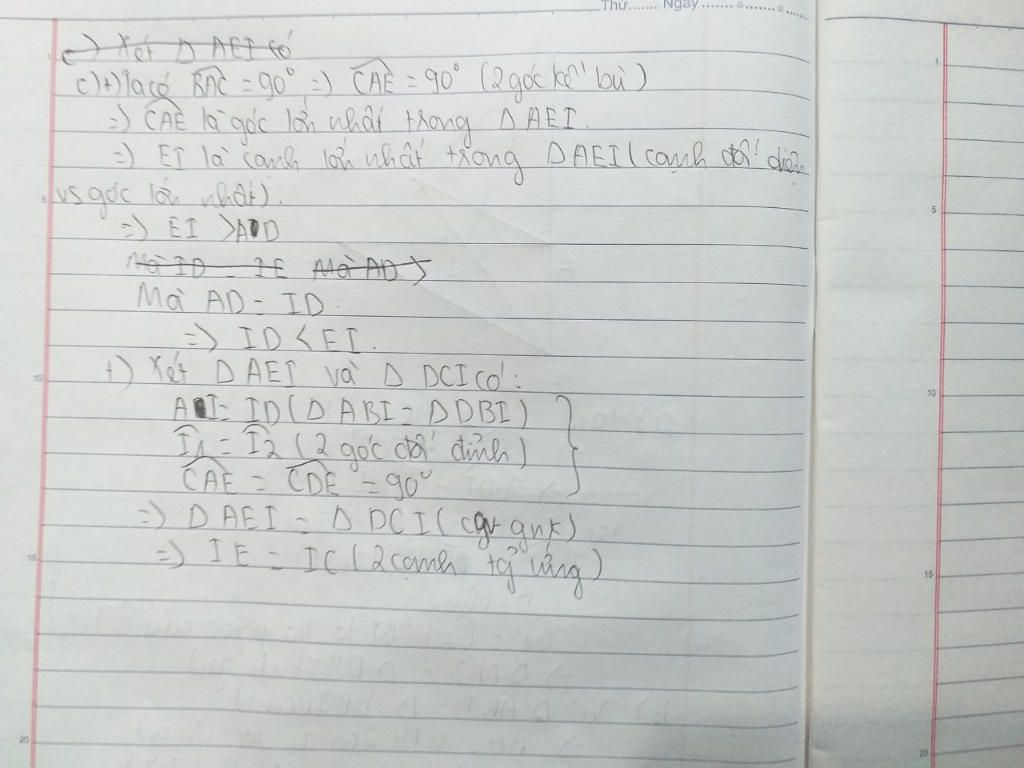 Thứ....... Ngày
c) Xét Δ AEI có
c)+)Ta có BAC = 90° => CAE = 90° (2 góc kề bù)
=) CAE là góc lớn nhất trong Δ AEI.
=) EI là cạnh lớn nhất trong ΔAEI (cạnh đối diện
vs góc lớn nhất).
=) EI >AD
Mà ID = IE Mà AD >
Mà AD = ID.
=) ID < EI.
+) Xét Δ AEI và Δ DCI có:
AI = ID (Δ ABI = Δ DBI)
I1 = I2 (2 góc đối đỉnh)
CAE = CDE = 90°
=) Δ AEI = Δ DCI (cgv gnk)
=) IE = IC (2 cạnh tg ứng)
1
5
10
15
20
10
15
20